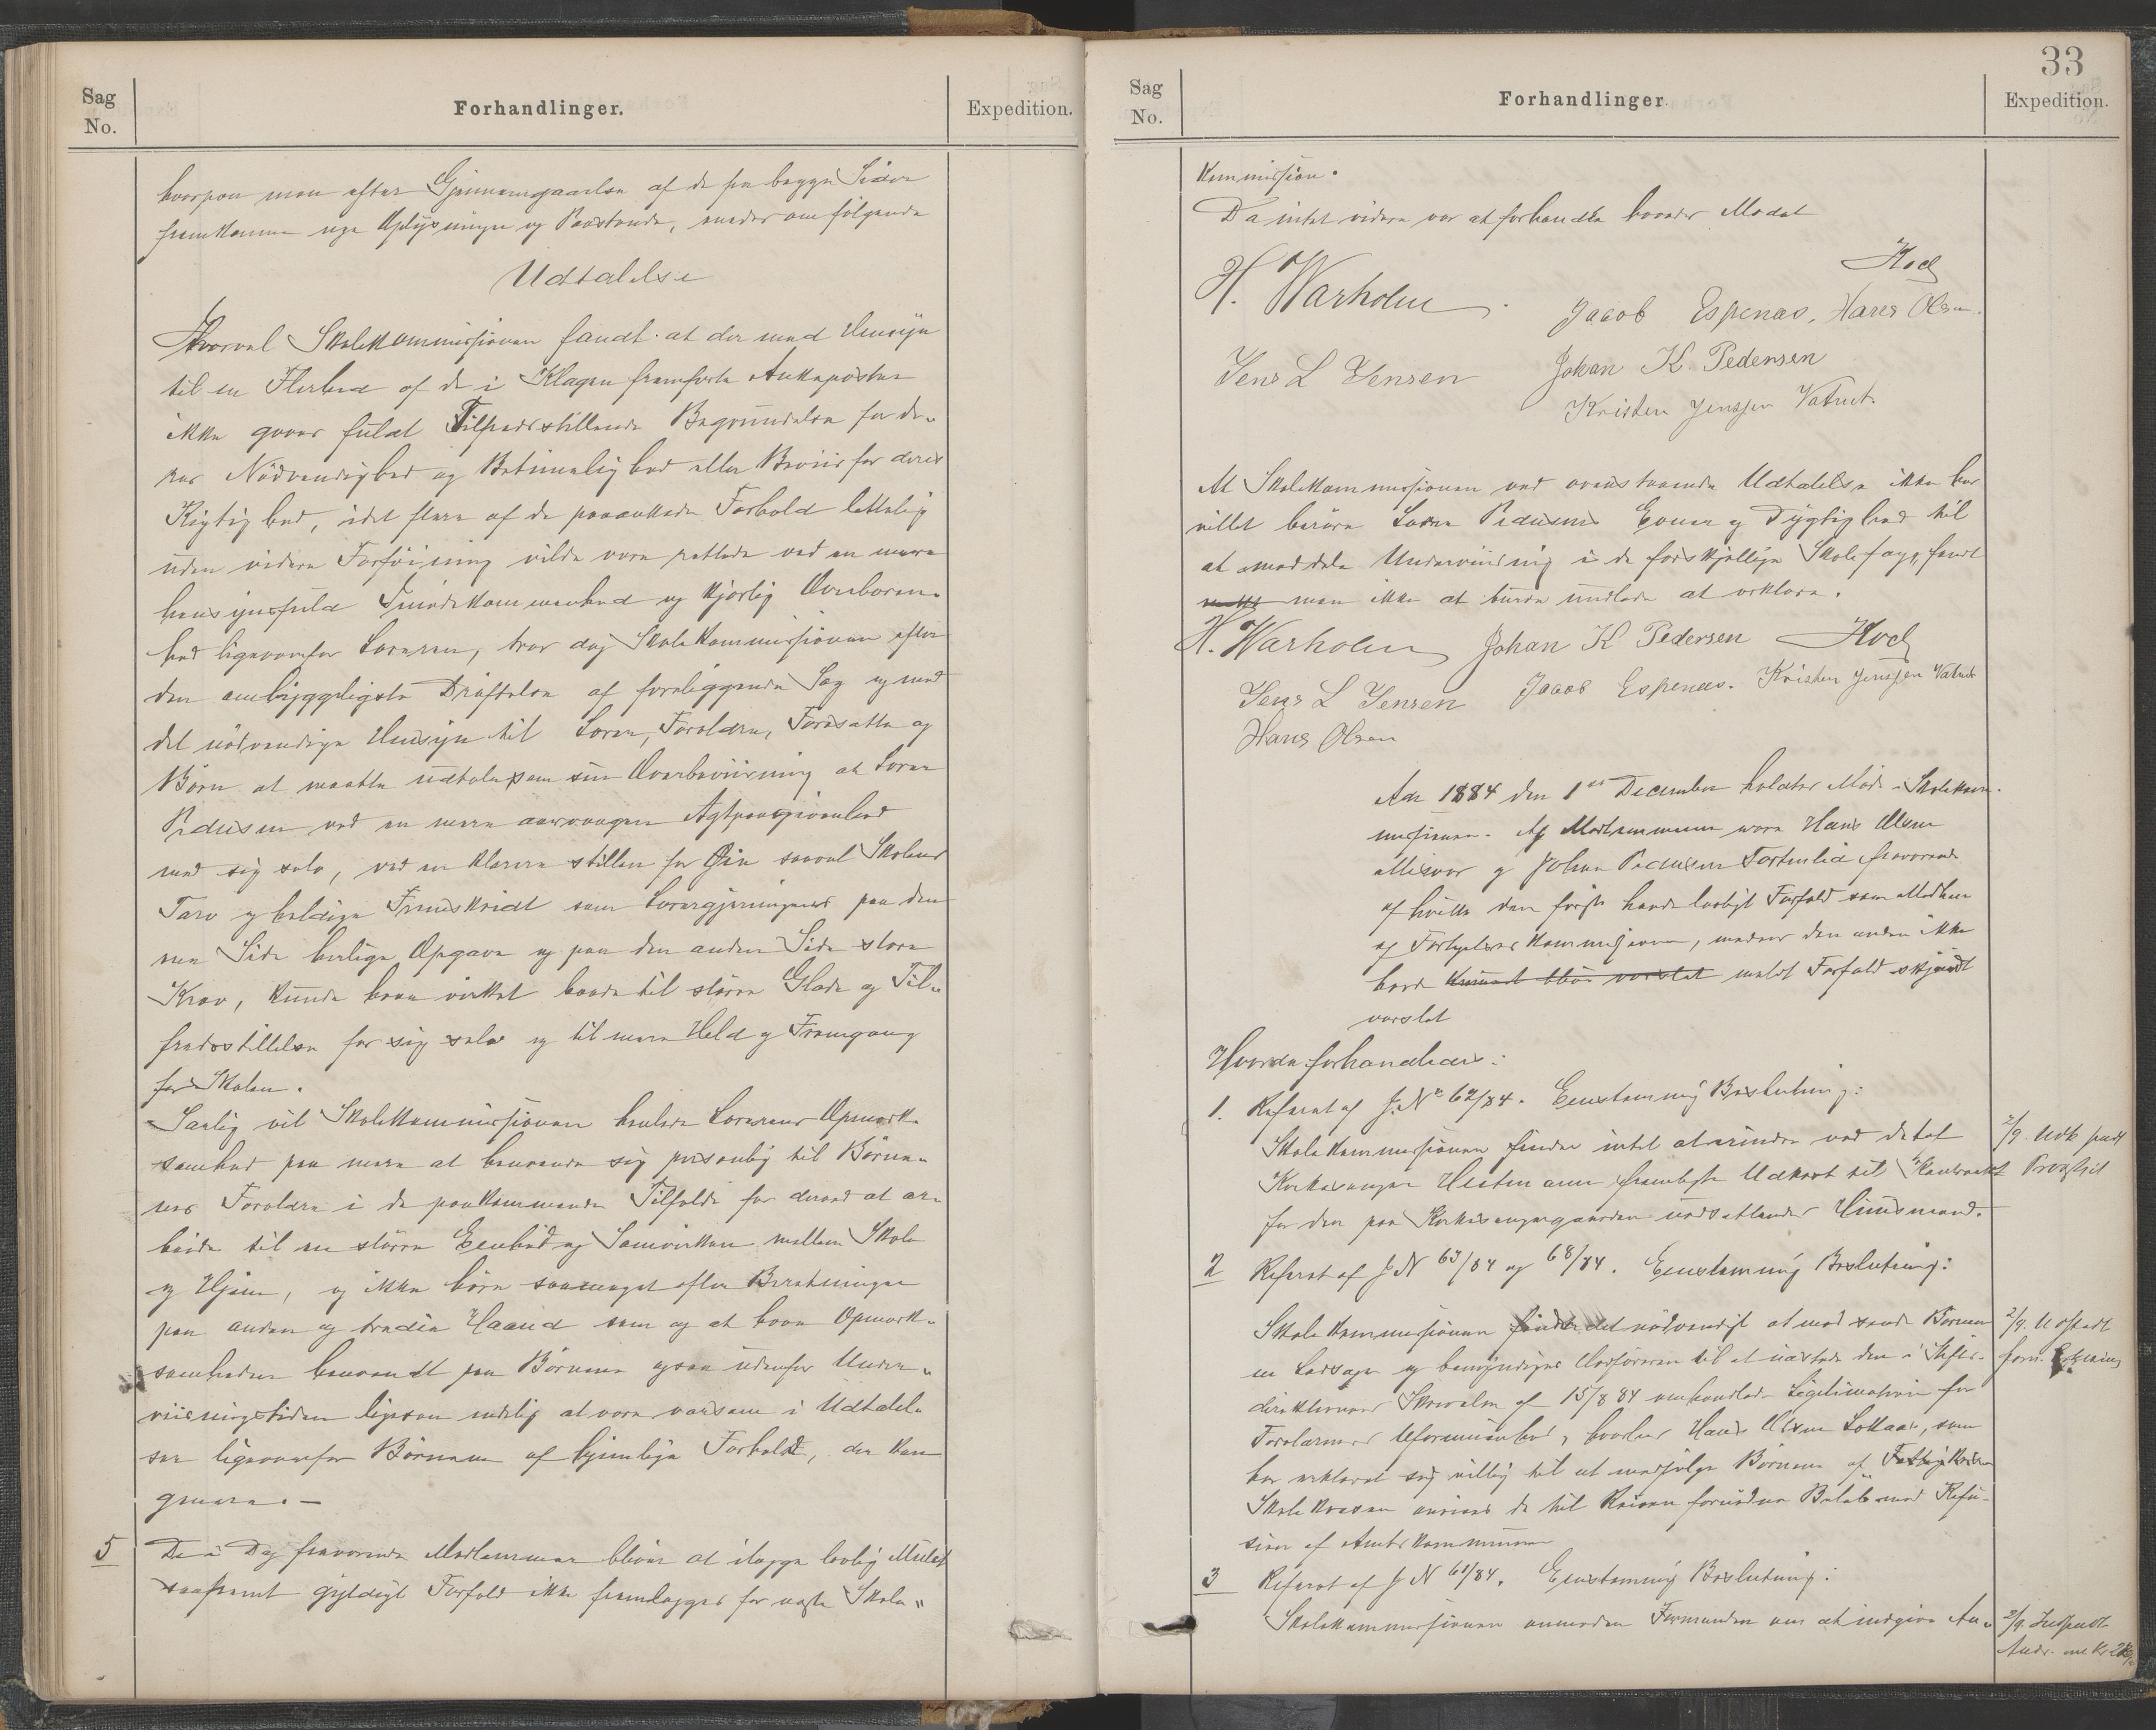 Sag
No.
Forhandlinger.
Expedition.
hvorpaa man efter Gjennemgaaelse af de fra begge Sider
fremkomne nye Oplysninger og Paastande, enedes om følgende
Udtalelse
Hvorvel Skolekommissionen fandt at der med Hensyn
til en Flerhed af de i Klagen fremførte Ankeposter
ikke gaves fuldt Tilfredsstillende Begrundelse for de-
res Nødvendighed og Betimelighed eller Beviis for deres
Rigtighed, idet flere af de paaankede Forhold lettelig
uden videre Forføining vilde være rettede ved en mere
hensynsfuld Imødekommenhed og kjærlig Overbæren-
hed ligeoverfor Læreren, tror dog Skolekommissionen efter
den omhyggeligste Drøftelse af foreliggende Sag og med
det nødvendige Hensyn til Lærer, Forældre, Foresatte og
Børn at maatte udtale som sin Overbeviisning at Lærer
Pedersen ved en mere aarvaagen Agtpaagivenhed
med sig selv, ved en klarere stillen for Øie saavel Skolens
Tarv og heldige Fremskridt som Lærergjerningens paa den
ene Side herlige Opgave og paa den anden Side store
Krav, kunde have virket baade til større Glæde og Til-
fredsstillelse for sig selv og til mere Held og Fremgang
for Skolen.
Særlig vil Skolekommissionen henlede Lærerens Opmærk-
somhed paa mere at henvende sig personlig til Børne-
nes Forældre i de paakommende Tilfælde for derved at ar-
beide til en større Eenhed og Samvirken mellem Skole
og Hjem, og ikke høre saameget efter Beretninger
paa anden og tredie Haand som og at have Opmærk-
somheden henvendt paa Børnene ogsaa udenfor Under-
viisningstiden ligesom endelig at være varsom i Udtalel-
ser ligeoverfor Børnene af hjemlige Forhold, der kan
genere. —
5 De i Dag fraværende Medlemmer bliver at ilægge lovlig Mulct
saafremt gyldigt Forfald ikke fremlægges for næste Skole-
33
Sag
No.
Forhandlinger.
Expedition.
Kommission.
Da intet videre var at forhandle hævedes Mødet
Koch
H. Warholm. Jacob Espenæs, Hans Olsen.
Jens L Jensen Johan K. Pedersen
Kristen Jenssen Vatnet.
At Skolekommissionen ved ovenstaaende Udtalelse ikke har
villet berøre Lærer Pedersens Evner og Dygtighed til
at meddele Underviisning i de forskjellige Skolefag, fandt
man ikke at burde undlade at erklære.
H. Warholm Johan K Pedersen Koch
Jens L Jensen Jacob Espenæs. Kristen Jenssen Vatnet
Hans Olsen
Aar 1884 den 1ste December holdtes Møde i Skolekom-
missionen. Af Medlemmerne vare Hans Olsen
og Johan Pedersen fraværende
af hvilke den første havde lovligt Forfald som Medlem
af Forligelses kommissionen, medens den anden ikke
havde kunnet blive varslet meldt Forfald skjøndt
varslet
Hvorda forhandledes:
1. Referat af J. No 62/84. Eenstemmig Beslutning:
Skolekommissionen finder intet at erindre ved det af
Kirkesanger Hestmann frembragte Udkast til Kontrakt
for den paa Kirkesangergaarden nedsættende Huusmand.
2 Referat af J N 63/84 og 68/84. Eenstemmig Beslutning:
Skolekommissionen finder det nødvendigt at med sende Børnene
en Ledsager og bemyndiger Ordføreren til at udstede den i Stifts-
direktionens Skrivelse af 15/8 84 omhandlede Legitimation for
Forældrenes Uformuenhed, hvorhos Hans Olsen , som
har erklæret sig villig til at medfølge Børnene af
Skolekassen anvises de til Reisen fornødne Beløb mod Refu-
sion af Amtskommunen
3 Referat af J N 61/84. Eenstemmig Beslutning:
Skolekommissionen anmoder Formanden om at indgive An-
2/9. Udk sendt
Provstiet
2/9. Udstedt
2/9. Indsendt
Andr. om Kr